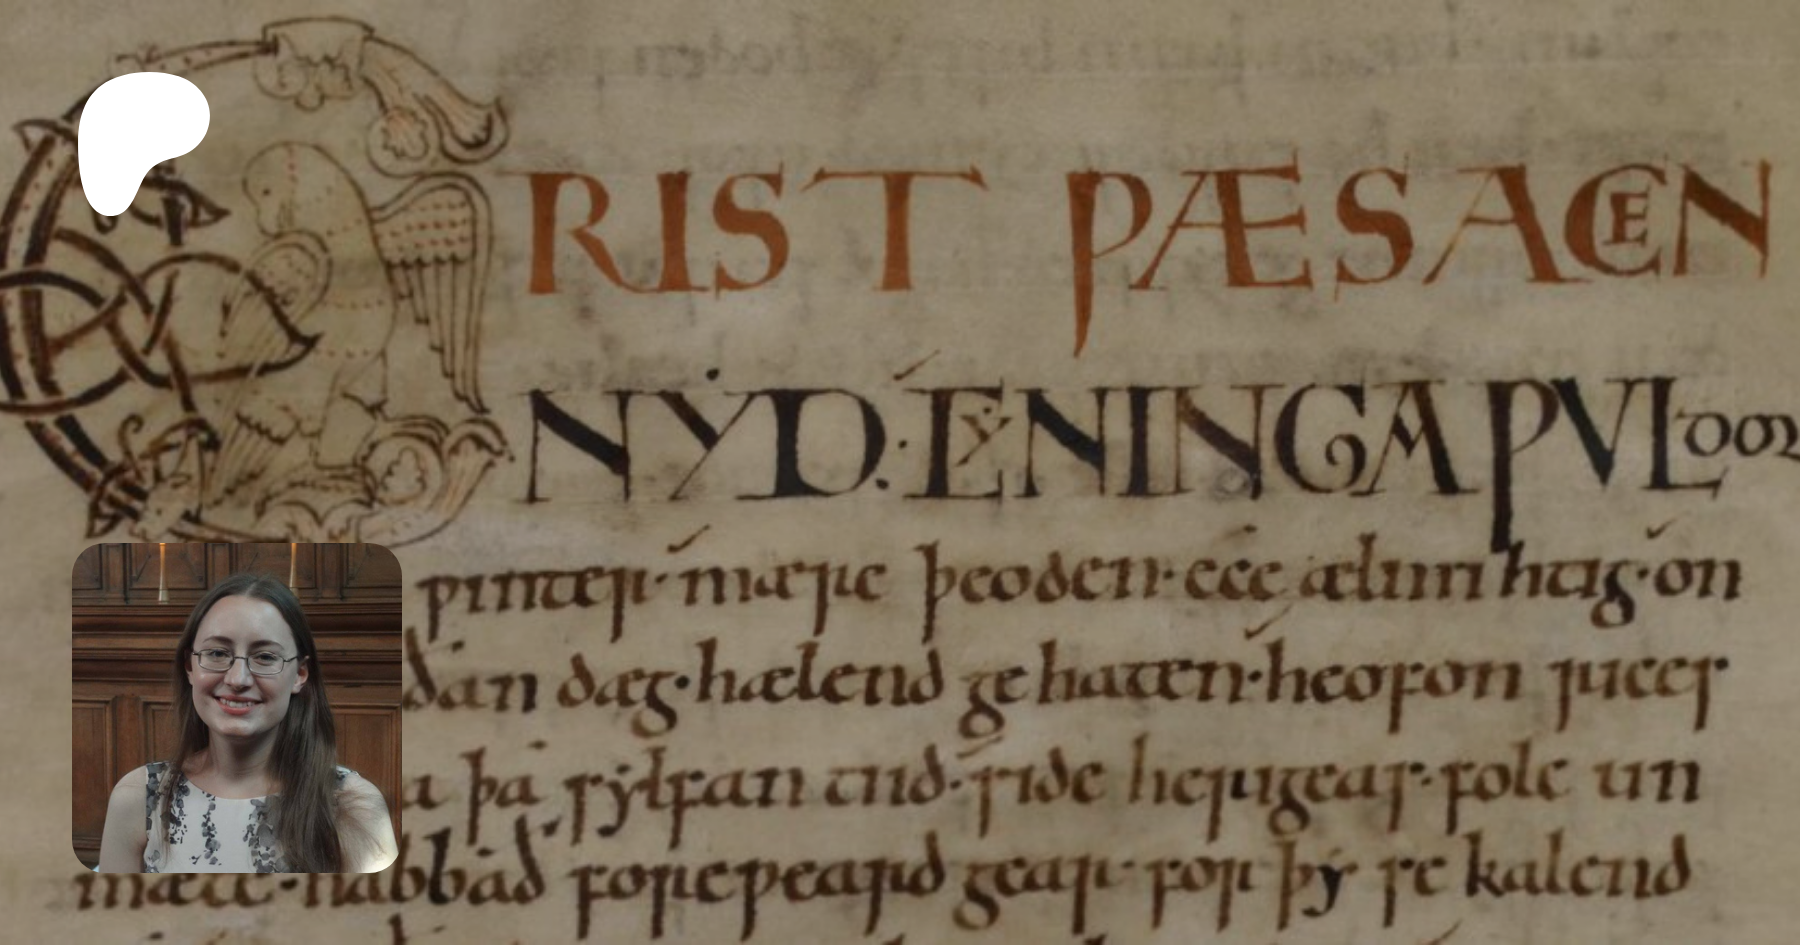 CRIST ǷÆS ACEN
NYD· EyNINGA ǷULdoꝛ
ƿinter· mære þeoden· ece ælmihtig· on
ðan dæg· hælend gehaten· heofon rices
a þa sylfan tiid· side herigeas· folc un
mæte· habbað foreƿeard gear· for þy se kalend